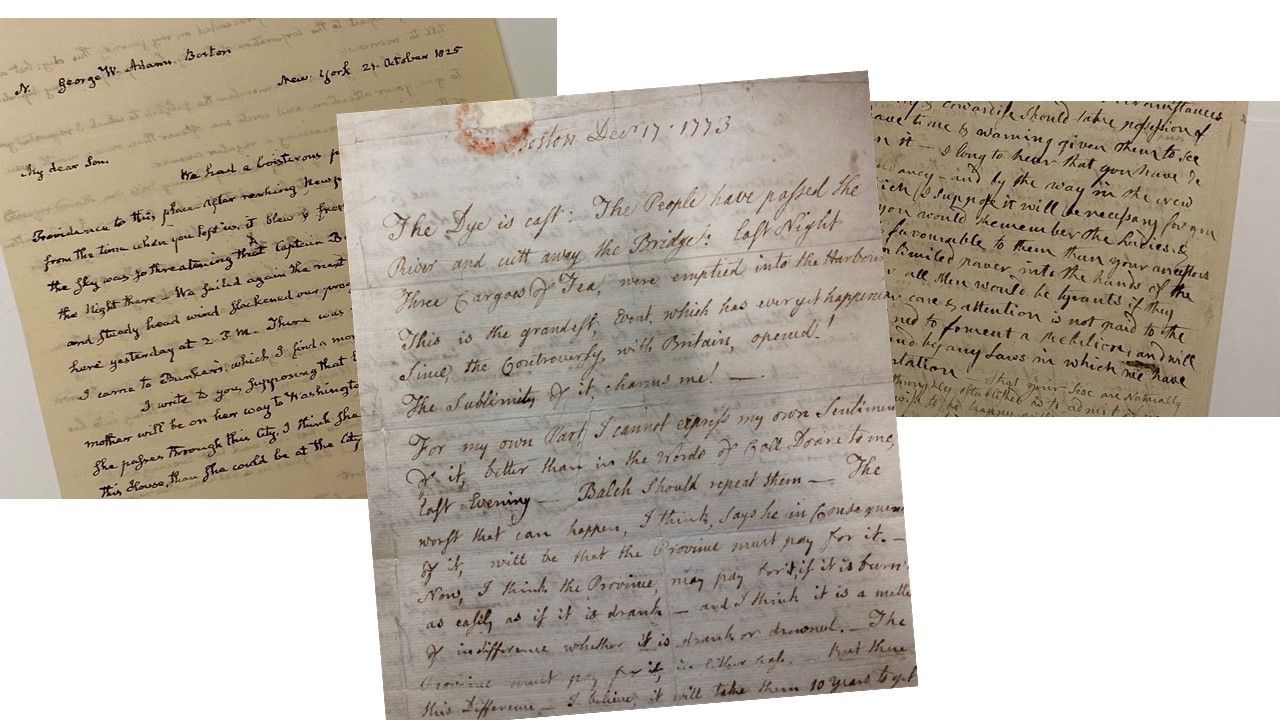 N. George W. Adams. Boston
New York 21. October 1825
My dear Son.
We had a boisterous
Providence to this place. After reaching Newp
from the time when you left us. it blew a fres
the sky was so threatening that Captain B
the Night there — We sailed again the next
and steady head wind slackened our pro
here yesterday at 2 P.M. There was
I came to Bunker's, which I find a mo
I write to you, supposing that
mother will be on her way to Washington
She passes through this City. I think she
this House, than She could be at the City
Boston Decr 17. 1773
The Dye is cast: The People have passed the
River and cutt away the Bridge: last Night
Three Cargoes of Tea, were emptied into the Harbour
This is the grandest, Event, which has ever yet happened
Since, the Controversy, with Britain, opened!
The Sublimity of it, charms me! —
For my own Part, I cannot express my own Sentimen
of it, better than in the Words of Coll Doane to me,
last Evening — Balch should repeat them — The
worst that can happen, I think, says he in Consequen
of it, will be that the Province must pay for it. —
Now, I think the Province, may pay for it, if it is burn
as easily as if it is drank — and I think it is a matte
of indifference whether it is drank or drowned. — The
Province must pay for it, in Either Case. — But there
this Difference — I believe, it will take them 10 Years to get
circumstances
& cowardise should take possession of
have time & warning given them to see
n it — I long to hear that you have de
dancy — and by the way in the new
which I suppose it will be necessary for you
you would remember the Ladies, &
favourable to them than your ancestors
unlimited power into the hands of the
all Men would be tyrants if they
care & attention is not paid to the
ned to foment a Rebelion, and will
nd by any Laws in which we have
ntation
That your Sex are Naturally
thoroughly established as to admit
wish to be happy